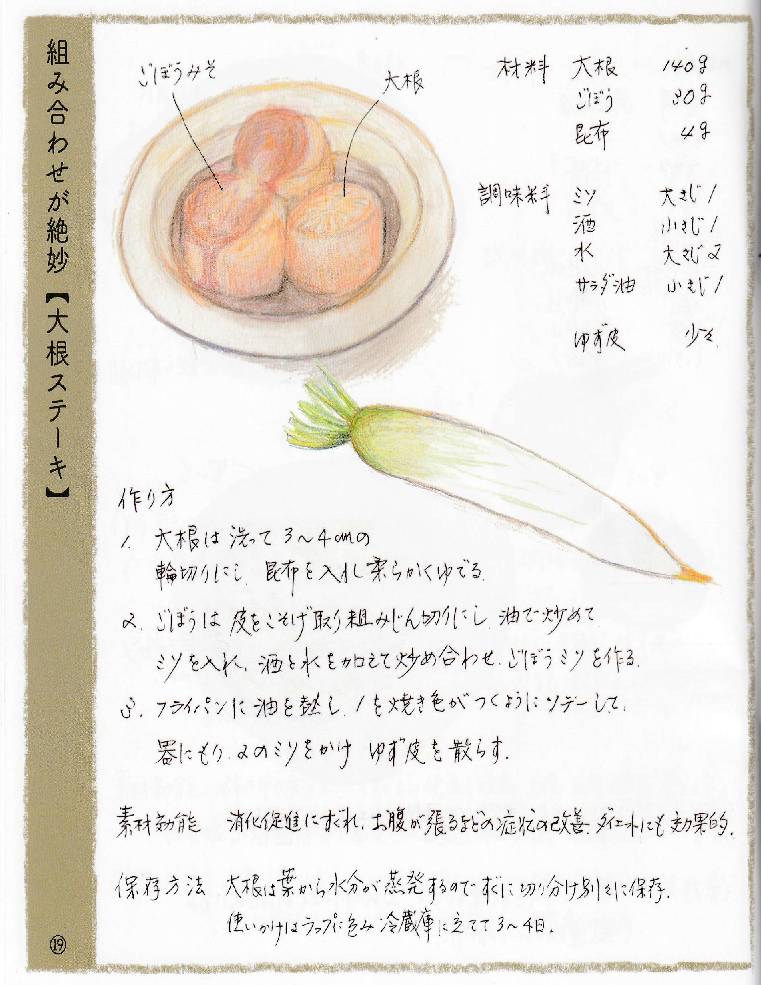 組み合わせが絶妙【大根ステーキ】
ごぼうみそ
大根
材料 大根 140g
ごぼう 30g
昆布 4g
調味料 ミソ 大さじ1
酒 小さじ1
水 大さじ2
サラダ油 小さじ1
ゆず皮 少々
作り方
1. 大根は洗って3〜4cmの
輪切りにし、昆布を入れ柔らかくゆでる。
2. ごぼうは皮をこそげ取り粗みじん切りにし、油で炒めて
ミソを入れ、酒と水を加えて炒め合わせ、ごぼうミソを作る。
3. フライパンに油を熱し、1を焼き色がつくようにソテーして、
器にもり、2のミソをかけ ゆず皮を散らす。
素材効能 消化促進にすぐれ、お腹が張るなどの症状の改善、ダイエットにも効果的。
保存方法 大根は葉から水分が蒸発するので すぐに切り分け別々に保存。
使いかけはラップに包み 冷蔵庫に立てて3〜4日。
⑲